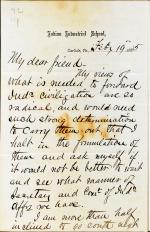 Indian Industrial School,
Carlisle, Pa., Feby 19th 1885
My dear friend:
My views of
what is needed to forward
Inds Civilization are so
radical, and would need
such strong determination
to carry them out that I
halt in the foundation of
them and ask myself if
it would not be better to wait
and see what manner of
Secretary and Comr of Ind.
Affs we have.
I am more than half
inclined to go south abt